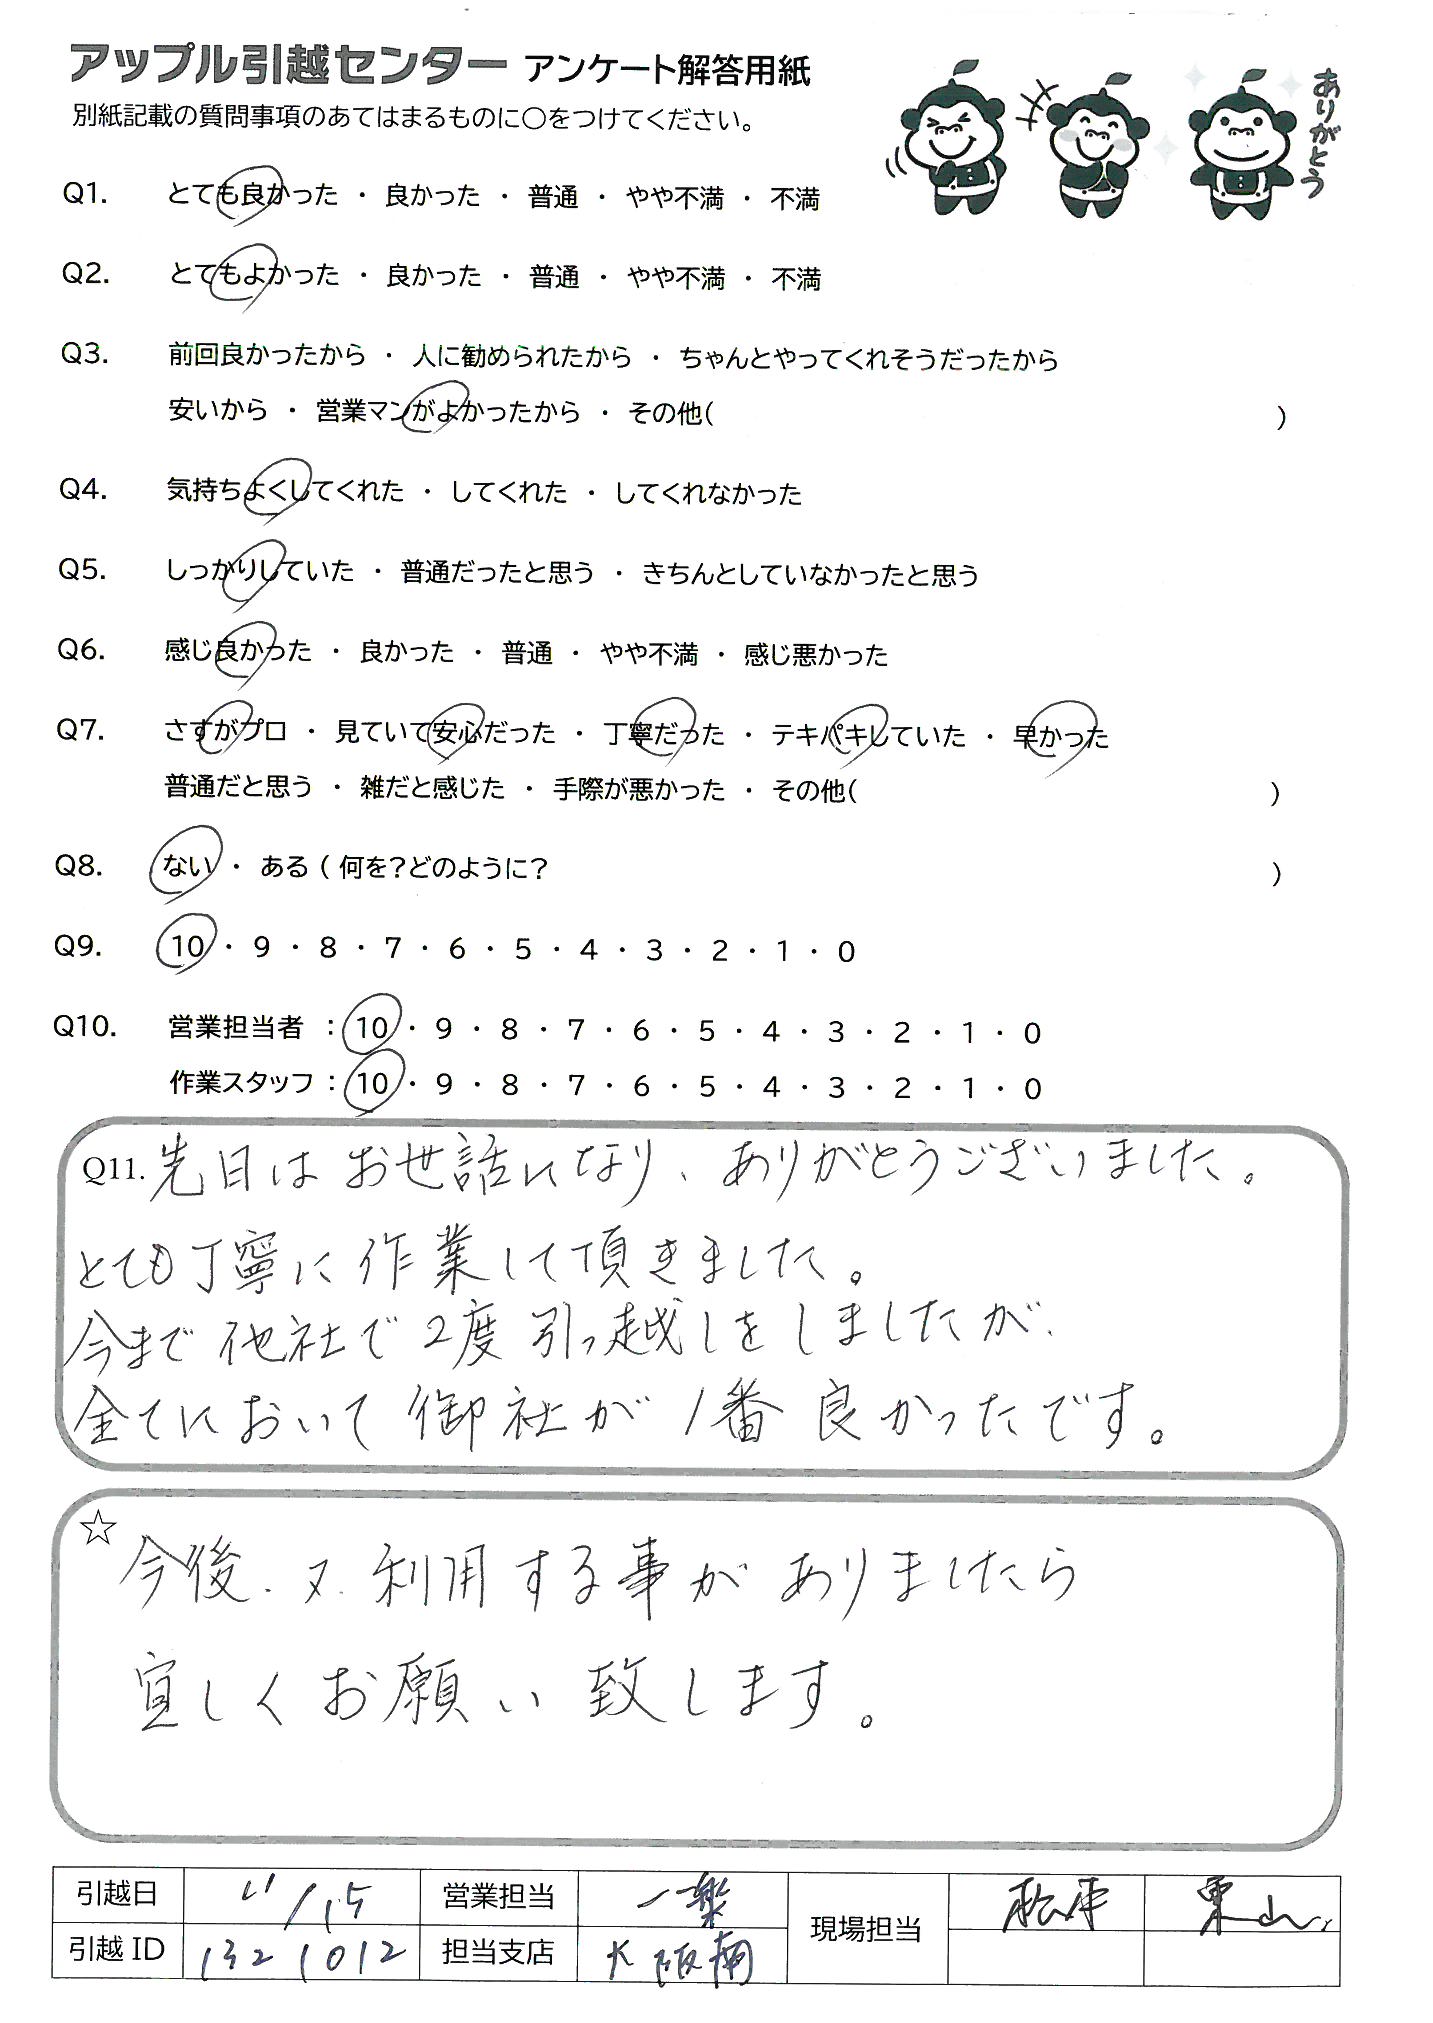 アップル引越センター アンケート解答用紙
別紙記載の質問事項のあてはまるものに○をつけてください。
ありがとう
Q1. とても良かった ・ 良かった ・ 普通 ・ やや不満 ・ 不満
Q2. とてもよかった ・ 良かった ・ 普通 ・ やや不満 ・ 不満
Q3. 前回良かったから ・ 人に勧められたから ・ ちゃんとやってくれそうだったから
安いから ・ 営業マンがよかったから ・ その他( )
Q4. 気持ちよくしてくれた ・ してくれた ・ してくれなかった
Q5. しっかりしていた ・ 普通だったと思う ・ きちんとしていなかったと思う
Q6. 感じ良かった ・ 良かった ・ 普通 ・ やや不満 ・ 感じ悪かった
Q7. さすがプロ ・ 見ていて安心だった ・ 丁寧だった ・ テキパキしていた ・ 早かった
普通だと思う ・ 雑だと感じた ・ 手際が悪かった ・ その他( )
Q8. ない ・ ある ( 何を?どのように? )
Q9. 10 ・ 9 ・ 8 ・ 7 ・ 6 ・ 5 ・ 4 ・ 3 ・ 2 ・ 1 ・ 0
Q10. 営業担当者 : 10 ・ 9 ・ 8 ・ 7 ・ 6 ・ 5 ・ 4 ・ 3 ・ 2 ・ 1 ・ 0
作業スタッフ : 10 ・ 9 ・ 8 ・ 7 ・ 6 ・ 5 ・ 4 ・ 3 ・ 2 ・ 1 ・ 0
Q11. 先日はお世話になり、ありがとうございました。
とても丁寧に作業して頂きました。
今まで他社で2度引っ越しをしましたが、
全てにおいて御社が1番良かったです。
☆
今後、又、利用する事がありましたら
宜しくお願い致します。
引越日 11/15 営業担当 一楽 現場担当 松本 東山
引越ID 1321012 担当支店 大阪南